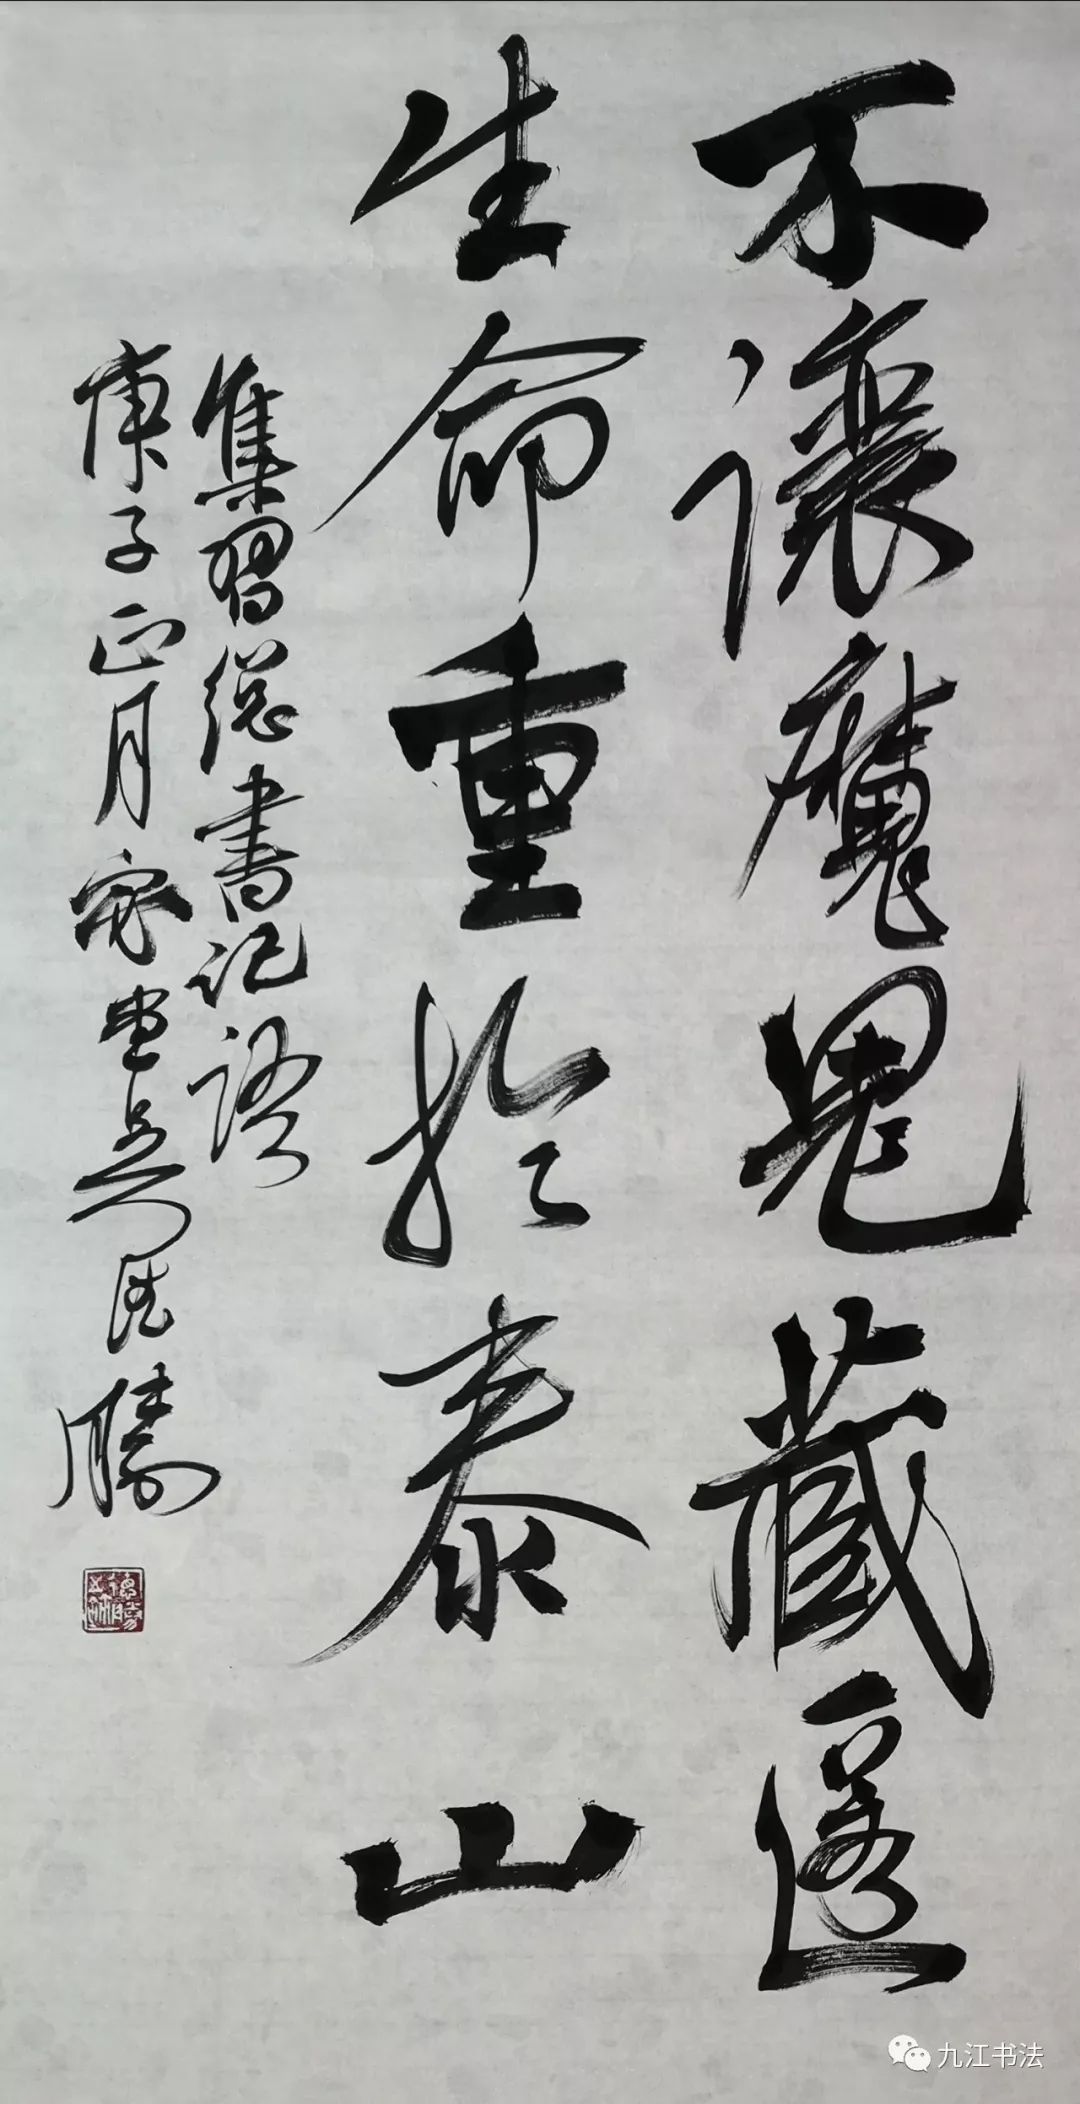 不讓魔鬼藏匿
生命重於泰山
集習總書記語
庚子正月吴勝
九江书法